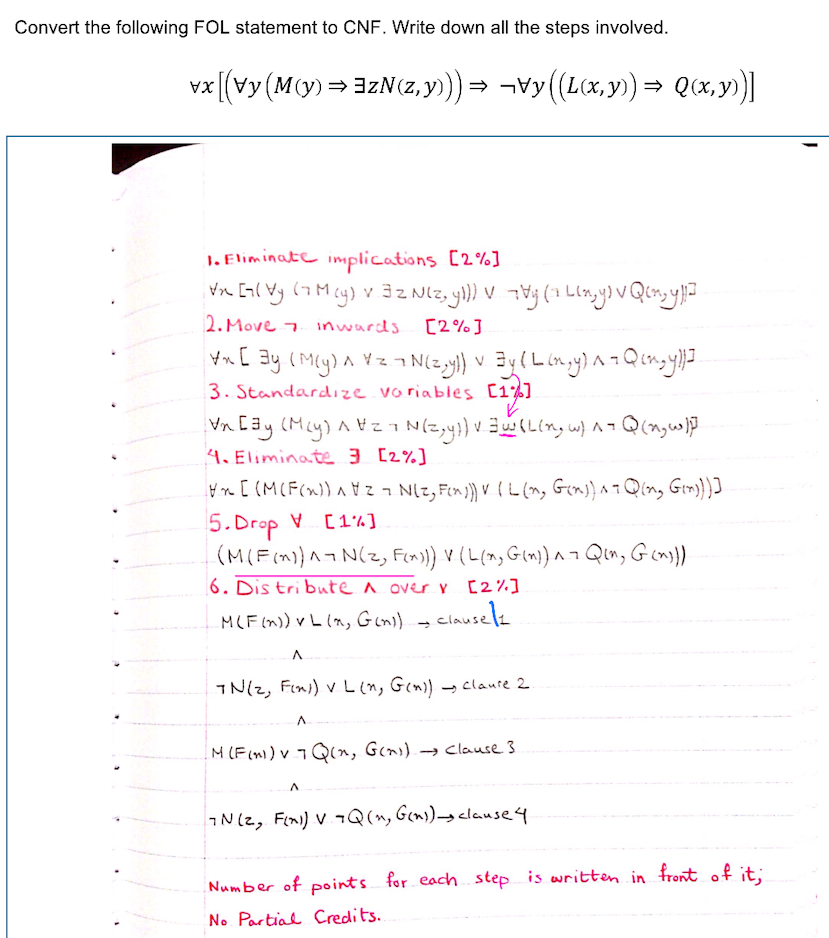 Convert the following FOL statement to CNF. Write down all the steps involved.
∀x[(∀y(M(y) ⇒ ∃zN(z,y))) ⇒ ¬∀y((L(x,y)) ⇒ Q(x,y))]
1. Eliminate implications [2%]
∀x [¬(∀y (¬M(y) ∨ ∃z N(z,y))) ∨ ¬∀y (¬L(x,y) ∨ Q(x,y))]
2. Move ¬ inwards [2%]
∀x [ ∃y (M(y) ∧ ∀z ¬N(z,y)) ∨ ∃y (L(x,y) ∧ ¬Q(x,y))]
3. Standardize variables [1%]
∀x [∃y (M(y) ∧ ∀z ¬N(z,y)) ∨ ∃w (L(x,w) ∧ ¬Q(x,w))]
4. Eliminate ∃ [2%]
∀x [ (M(F(x)) ∧ ∀z ¬N(z,F(x))) ∨ (L(x, G(x)) ∧ ¬Q(x, G(x)))]
5. Drop ∀ [1%]
(M(F(x)) ∧ ¬N(z, F(x))) ∨ (L(x,G(x)) ∧ ¬Q(x, G(x)))
6. Distribute ∧ over ∨ [2%]
M(F(x)) ∨ L(x, G(x)) → clause 1
∧
¬N(z, F(x)) ∨ L(x, G(x)) → clause 2
∧
M(F(x)) ∨ ¬Q(x, G(x)) → clause 3
∧
¬N(z, F(x)) ∨ ¬Q(x, G(x)) → clause 4
Number of points for each step is written in front of it;
No Partial Credits.